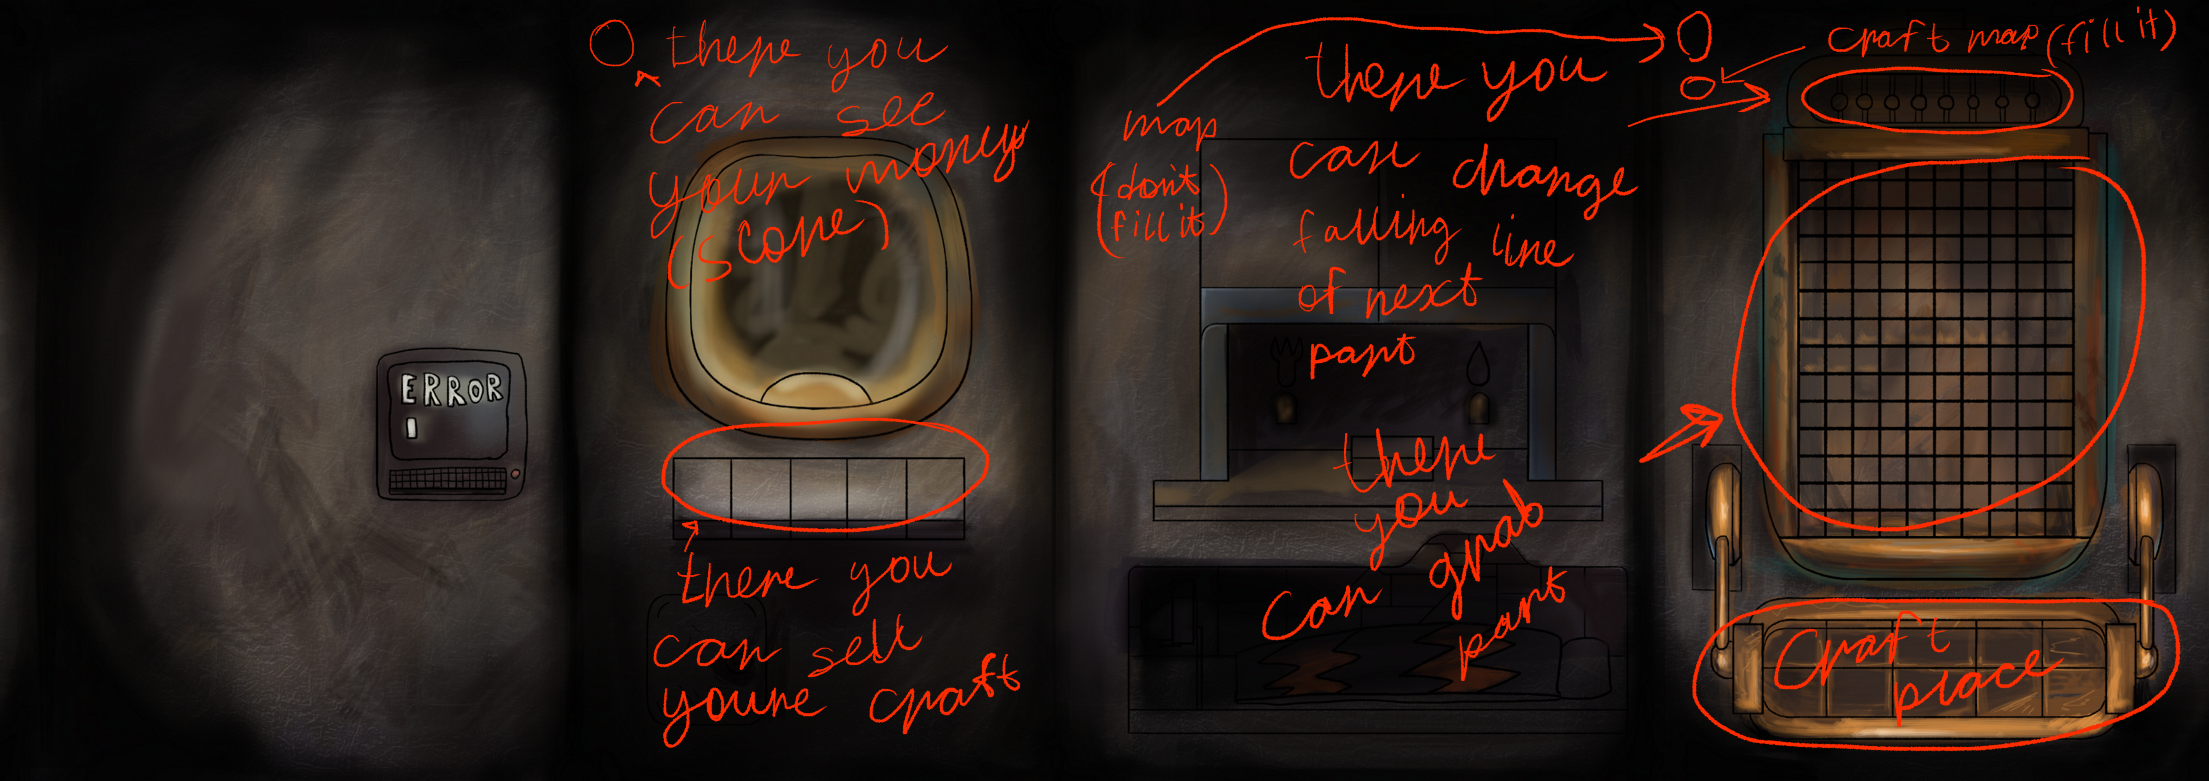 ERROR
there you
can see
your money
(score)
there you
can sell
youre craft
map
(don't
fill it)
there you
can change
falling line
of next
part
there
you
can grab
part
craft map (fill it)
craft
place